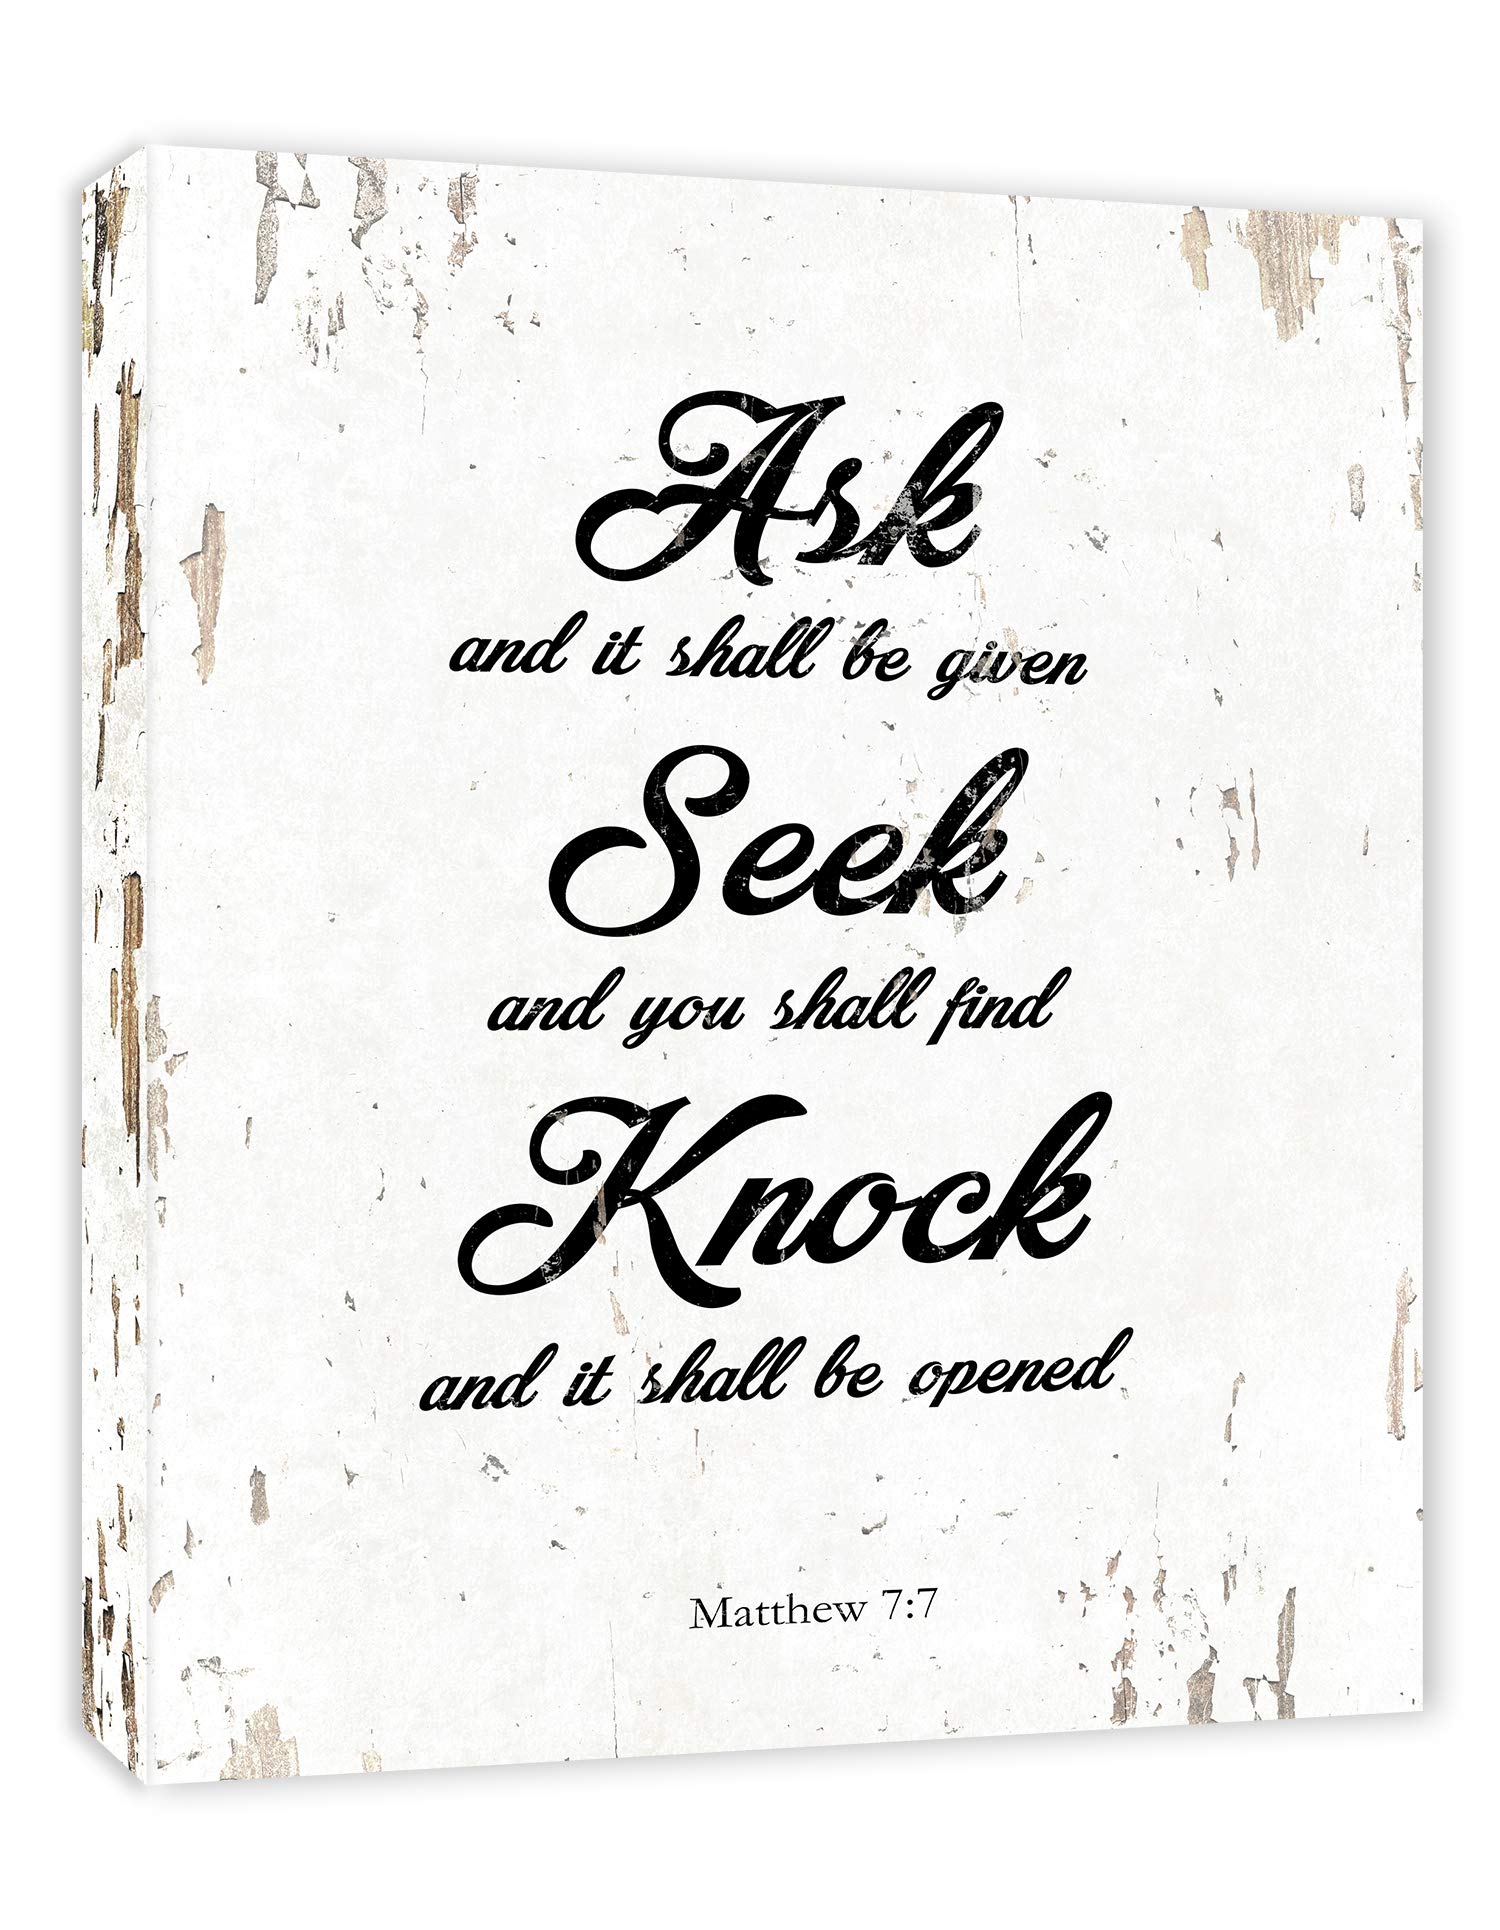 Ask
and it shall be given
Seek
and you shall find
Knock
and it shall be opened
Matthew 7:7